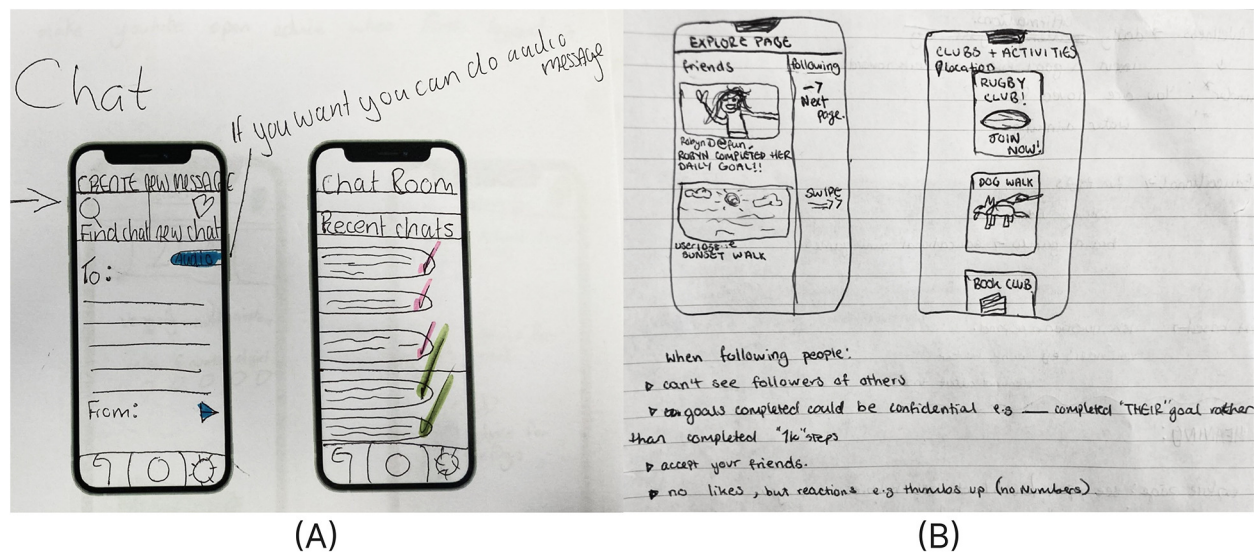 Chat
If you want you can do audio
message
CREATE new MESSAGE
Find chat new chat
AUDIO
To:
From:
Chat Room
Recent chats
(A)
EXPLORE PAGE
friends
following
→
Next
page.
Robyn @fun
ROBYN COMPLETED HER
DAILY GOAL!!
SWIPE
SUNSET WALK
CLUBS + ACTIVITIES
location
RUGBY
CLUB!
JOIN
NOW!
DOG WALK
BOOK CLUB
When following people:
can't see followers of others
goals completed could be confidential e.g ___ completed "THEIR" goal rather
than completed "1k" steps
accept your friends.
no likes, but reactions e.g thumbs up (no Numbers)
(B)